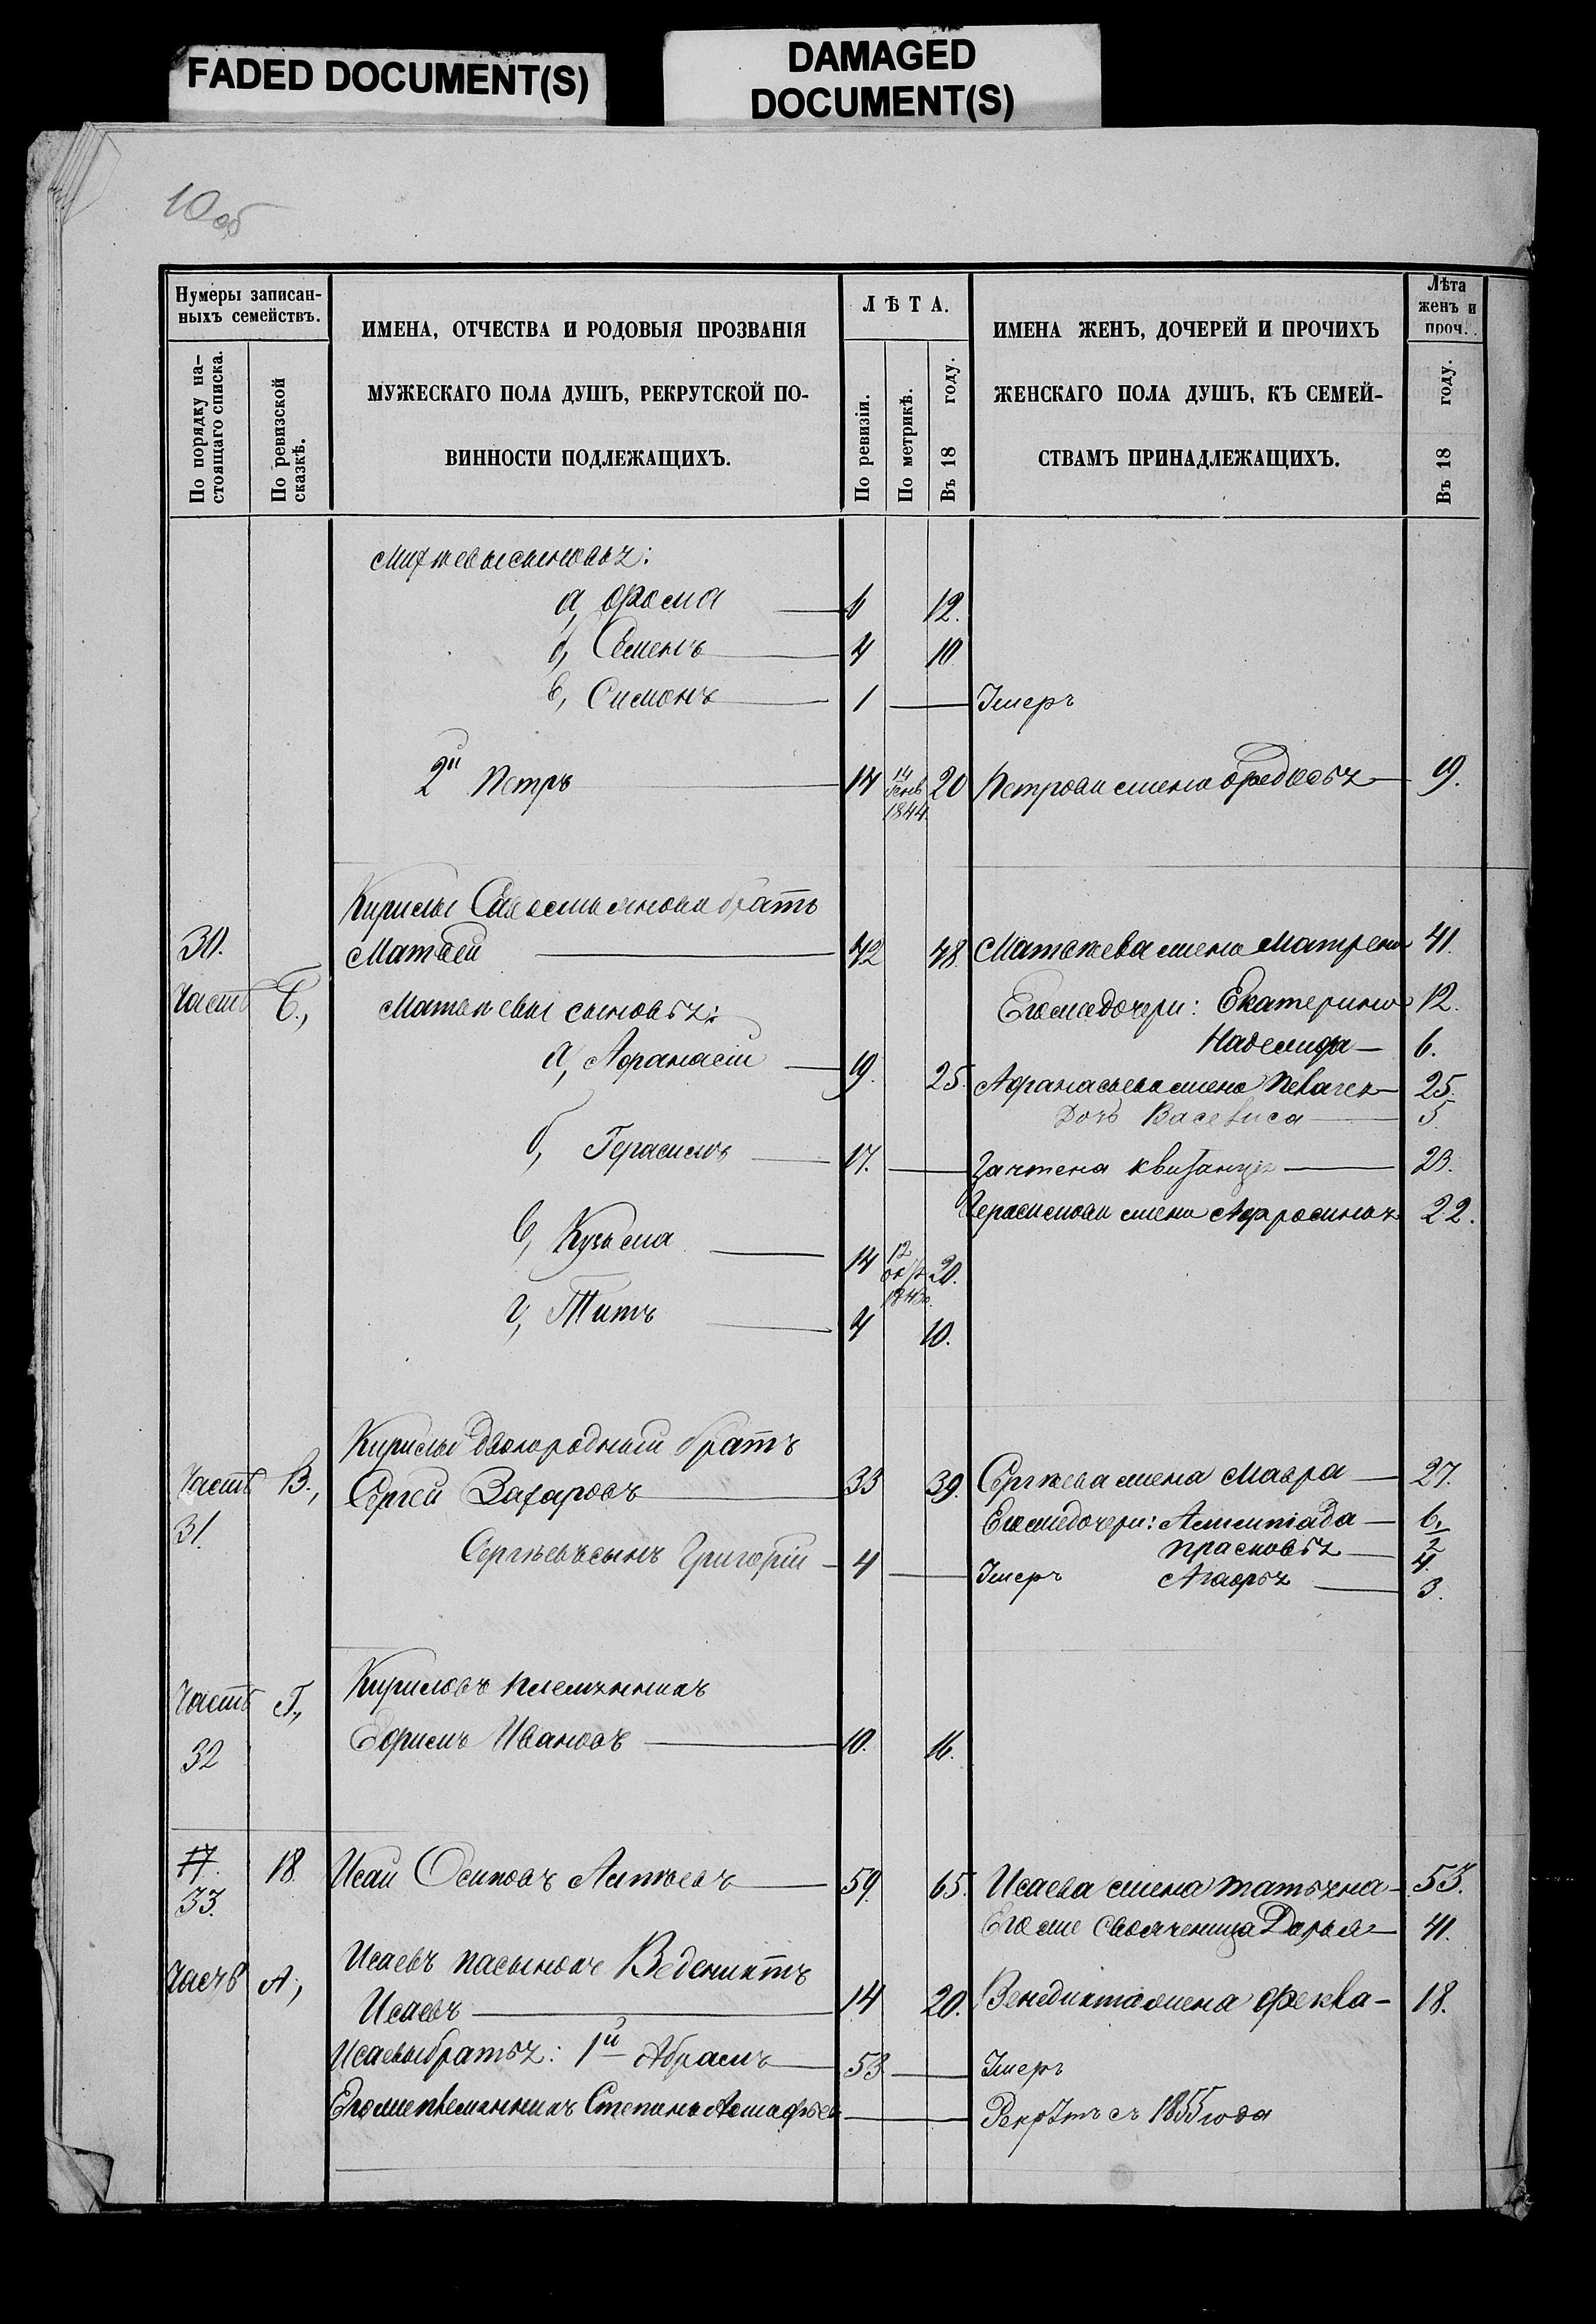 FADED DOCUMENT(S)
DAMAGED
DOCUMENT(S)
10 об
Нумеры записан-
ныхъ семействъ.
По порядку на-
стоящаго списка.
По ревизской
сказкѣ.
ИМЕНА, ОТЧЕСТВА И РОДОВЫЯ ПРОЗВАНІЯ
МУЖЕСКАГО ПОЛА ДУШЪ, РЕКРУТСКОЙ ПО-
ВИННОСТИ ПОДЛЕЖАЩИХЪ.
ЛѢТА.
По ревизіи.
По метрикѣ.
Въ 18 году.
ИМЕНА ЖЕНЪ, ДОЧЕРЕЙ И ПРОЧИХЪ
ЖЕНСКАГО ПОЛА ДУШЪ, КЪ СЕМЕЙ-
СТВАМЪ ПРИНАДЛЕЖАЩИХЪ.
Лѣта
женъ и
проч.
Въ 18 году.
сыновья:
а, Фома 6 12.
б, Семенъ 4 10
в, Симонъ 1 Умеръ
2й Петръ 14 14 Генв 1844 20 Петрова жена Федосья 19.
Кирилы братъ
30. Матвей 42 48. Матвѣева жена Матрена 41.
Часть Б., Матвѣевы сыновья: Егоже дочери: Екатерина 12.
Надежда 6.
а, Афанасій 19. 25. Афанасьева жена 25.
Дочь Василиса 5.
б, Герасимъ 17. Зачтена квитанція 23.
Герасимова жена Афросинья 22.
в, Кузьма 14 12 20.
г, Титъ 4 10.
Кирилы двоюродный братъ
Часть В., Сергѣй Захаровъ 33 39. Сергѣева жена Мавра 27.
31. Егоже дочери: 6.
Прасковья 4.
Сергѣевъ сынъ Григорій 4 Умеръ Агафья 3.
Кириловъ племянникъ
Часть Г., Ефимъ Ивановъ 10. 16.
32
17. 18 Исай Осиповъ 59. 65. Исаева жена Татьяна 53.
33. Егоже свояченица Дарья 41.
Исаевъ пасынокъ Веденихтъ
Часть А, Исаевъ 14 20. Венедихта жена Фекла 18.
Исаевы братья: 1й Абрамъ 53 Умеръ
Егоже племянникъ Степанъ Рекрутъ съ 1855 года